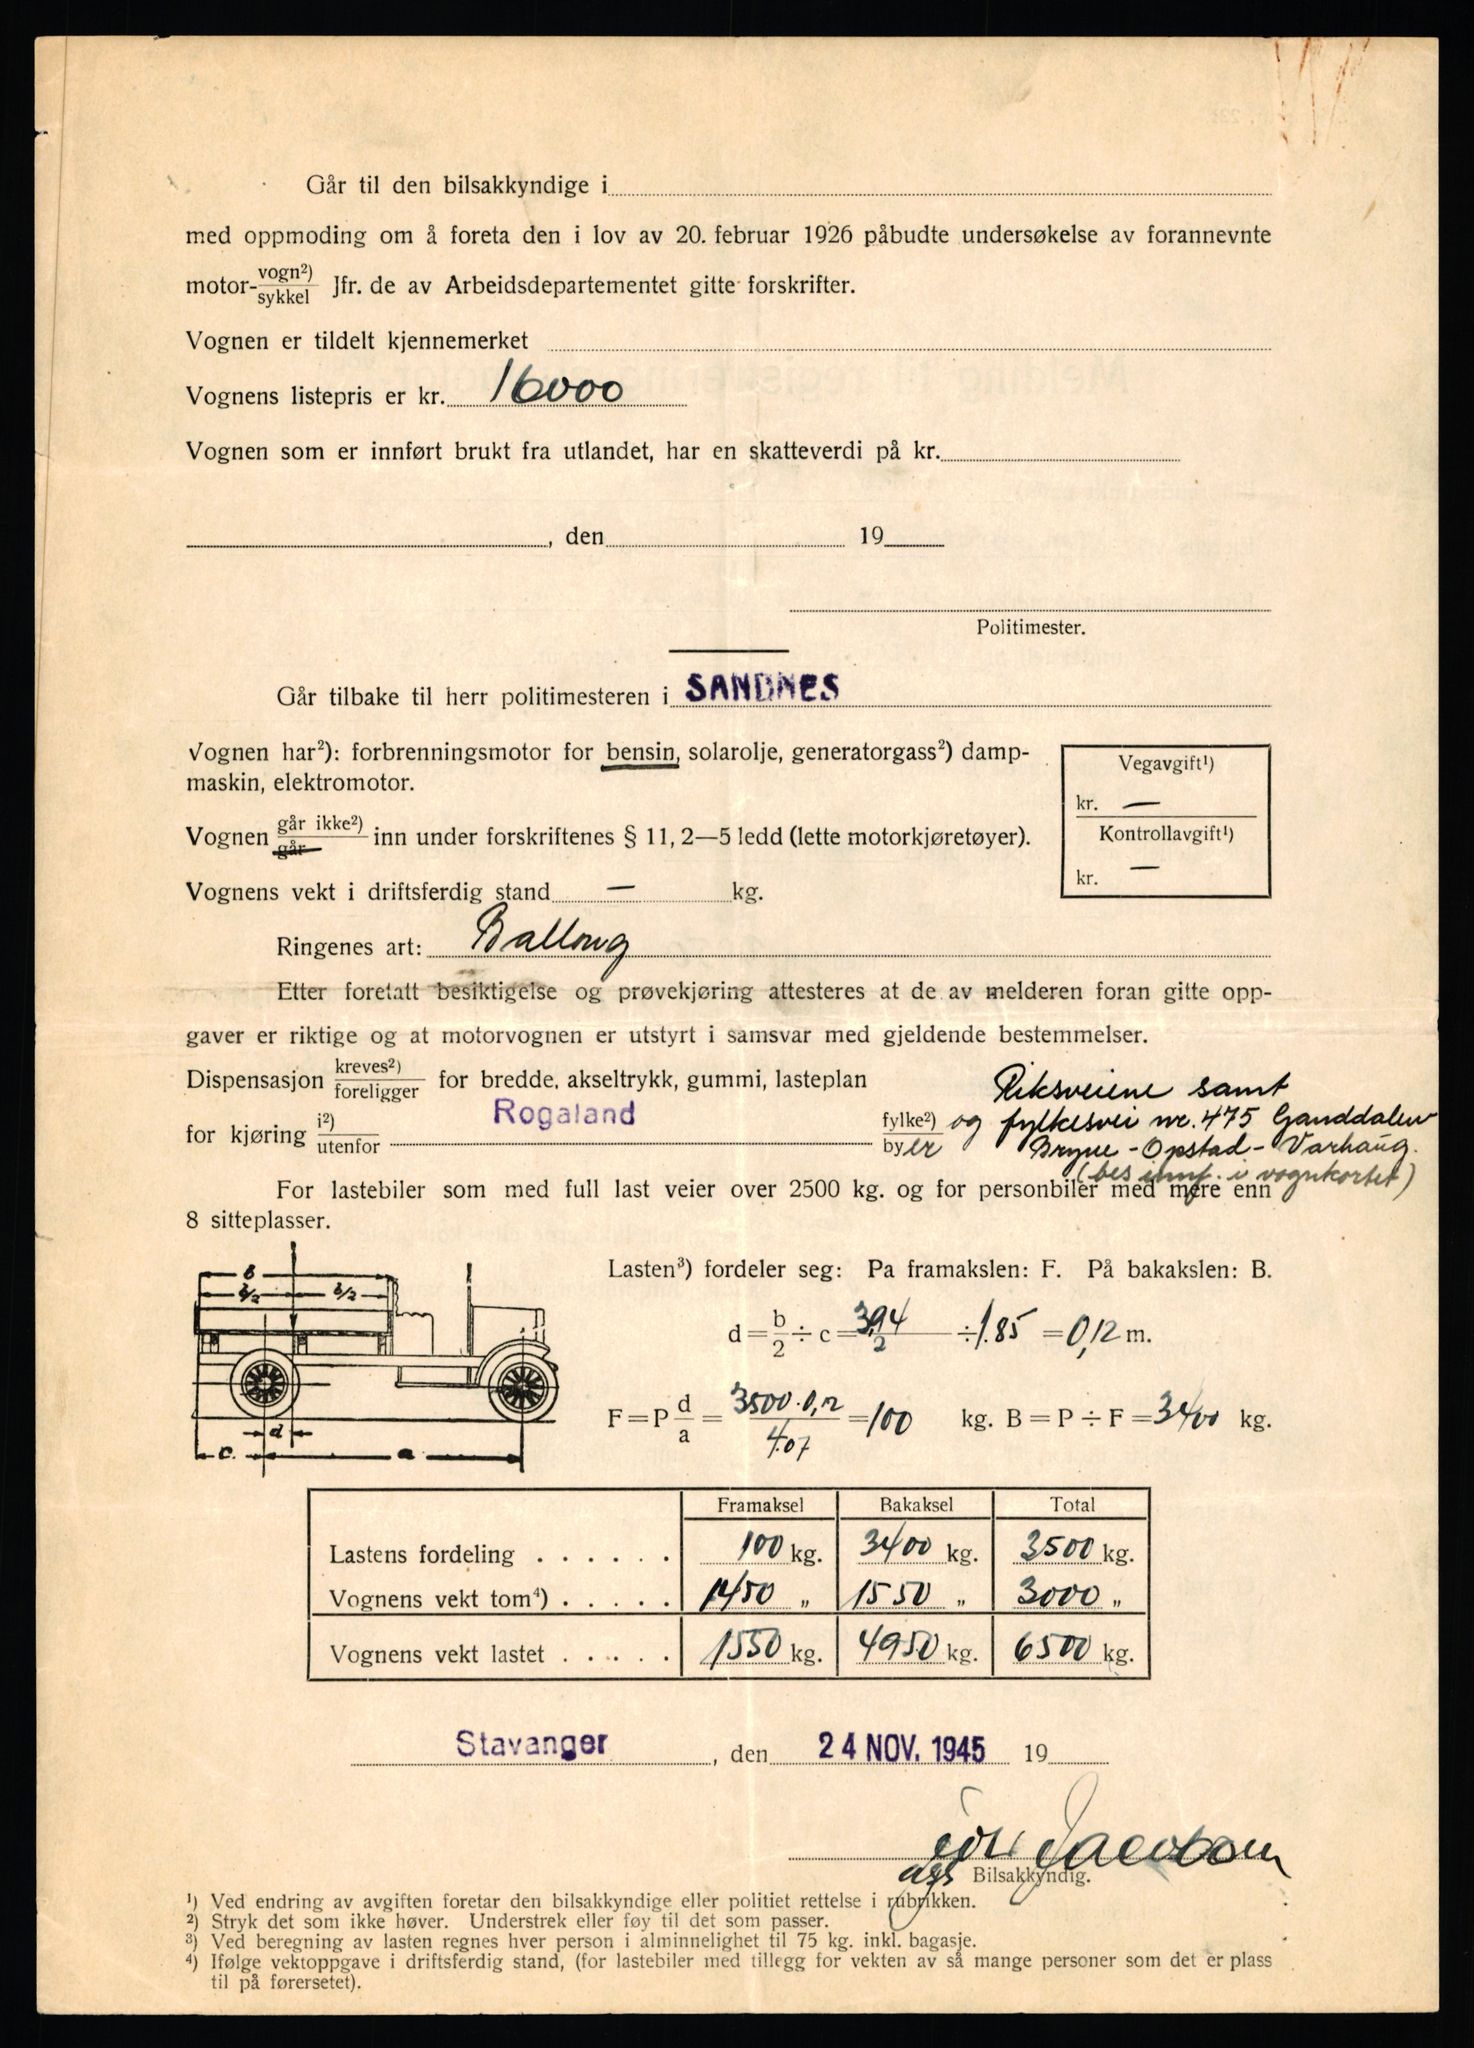 Går til den bilsakkyndige i
med oppmoding om å foreta den i lov av 20. februar 1926 påbudte undersøkelse av forannevnte
motor-vogn²)/sykkel Jfr. de av Arbeidsdepartementet gitte forskrifter.
Vognen er tildelt kjennemerket
Vognens listepris er kr. 16000
Vognen som er innført brukt fra utlandet, har en skatteverdi på kr.
, den 19
Politimester.
Går tilbake til herr politimesteren i SANDNES
Vognen har²): forbrenningsmotor for bensin, solarolje, generatorgass²) damp-
maskin, elektromotor.
Vegavgift¹)
kr. —
Kontrollavgift¹)
kr. —
Vognen går ikke²)/går inn under forskriftenes § 11, 2—5 ledd (lette motorkjøretøyer).
Vognens vekt i driftsferdig stand — kg.
Ringenes art: Ballong
Etter foretatt besiktigelse og prøvekjøring attesteres at de av melderen foran gitte opp-
gaver er riktige og at motorvognen er utstyrt i samsvar med gjeldende bestemmelser.
Dispensasjon kreves²)/foreligger for bredde, akseltrykk, gummi, lasteplan
for kjøring i²)/utenfor Rogaland fylke²)/byer og
Riksveiene samt
fylkesvei nr. 475 Ganddalen
Bryne - Opstad - Varhaug.
(bes innf. i vognkortet)
For lastebiler som med full last veier over 2500 kg. og for personbiler med mere enn
8 sitteplasser.
Lasten³) fordeler seg: Pa framakslen: F. På bakakslen: B.
b
b/2 b/2
d = b/2 ÷ c = 3,94/2 ÷ 1.85 = 0,12 m.
F = P d/a = 3500 · 0,12/4.07 = 100 kg. B = P ÷ F = 3400 kg.
d
c. a
Framaksel Bakaksel Total
Lastens fordeling . . . . . . 100 kg. 3400 kg. 3500 kg.
Vognens vekt tom⁴) . . . . . 1450 „ 1550 „ 3000 „
Vognens vekt lastet . . . . . 1550 kg. 4950 kg. 6500 kg.
Stavanger , den 24 NOV. 1945 19
Jacobsen
ass Bilsakkyndig.
¹) Ved endring av avgiften foretar den bilsakkyndige eller politiet rettelse i rubrikken.
²) Stryk det som ikke høver. Understrek eller føy til det som passer.
³) Ved beregning av lasten regnes hver person i alminnelighet til 75 kg. inkl. bagasje.
⁴) Ifølge vektoppgave i driftsferdig stand, (for lastebiler med tillegg for vekten av så mange personer som det er plass
til på førersetet).